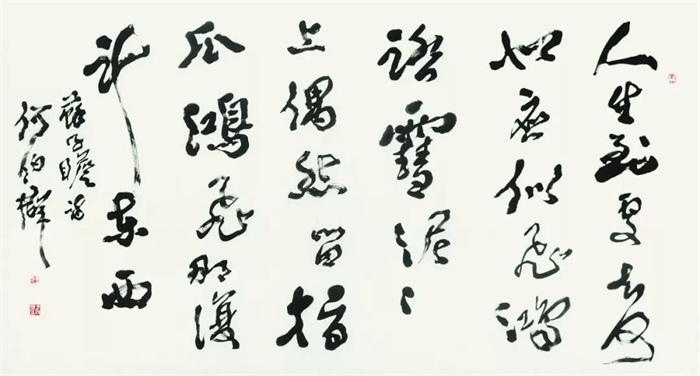 人生到處知何
似應似飛鴻
踏雪泥々
上偶然留指
爪鴻飛那復
計東西
蘇子瞻詩